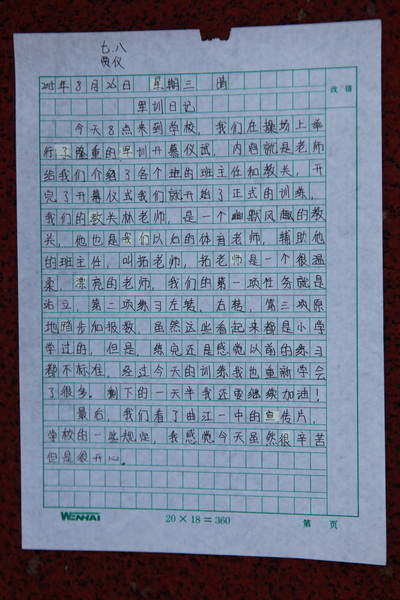 七.八
贾仪
2015年8月26日 星期三 晴
改 错
军训日记
今天8点来到学校,我们在操场上举
行了隆重的军训开幕仪试,内容就是老师
给我们介绍了各个班的班主任和教关,开
完了开幕仪式我们就开始了正式的训练,
我们的教关林老师,是一个幽默风趣的教
关,他也是我们以后的体育老师,辅助他
的班主任,叫拓老师,拓老师是一个很温
柔,漂亮的老师,我们的第一项任务就是
站立,第二项练习左转,右转,第三项原
地踏步和报数,虽然这些看起来都是小学
学过的,但是,练完还是感觉以前的练习
都不标准,经过今天的训练我也重新学会
了很多。剩下的一天半我还要继续加油!
最后,我们看了曲江一中的宣传片,
学校的一些规定,我感觉今天虽然很辛苦
但是很开心。
WENHAI 20×18=360 第 页